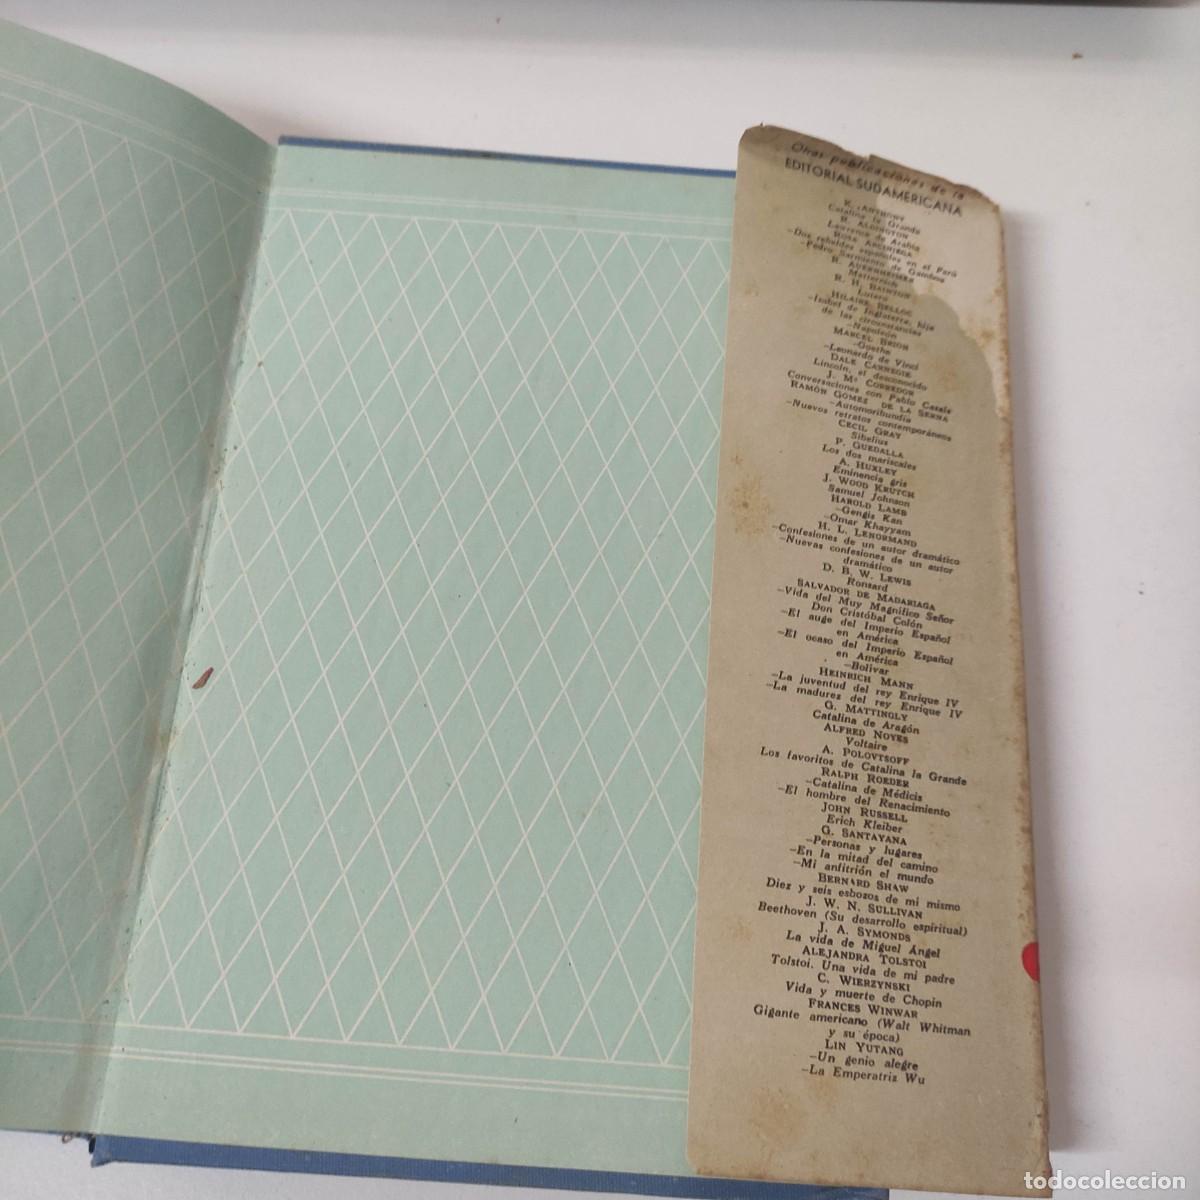 Otras publicaciones de la
EDITORIAL SUDAMERICANA
K. ANTHONY
Catalina la Grande
R. ALDINGTON
Lawrence de Arabia
ROSA ARCINIEGA
–Dos rebeldes españoles en el Perú
–Pedro Sarmiento de Gamboa
R. AUERNHEIMER
Metternich
R. H. BAINTON
Lutero
HILAIRE BELLOC
–Isabel de Inglaterra, hija
de las circunstancias
–Napoleón
MARCEL BRION
–Goethe
–Leonardo de Vinci
DALE CARNEGIE
Lincoln, el desconocido
J. Mª CORREDOR
Conversaciones con Pablo Casals
RAMÓN GÓMEZ DE LA SERNA
–Automoribundia
–Nuevos retratos contemporáneos
CECIL GRAY
Sibelius
P. GUEDALLA
Los dos mariscales
A. HUXLEY
Eminencia gris
J. WOOD KRUTCH
Samuel Johnson
HAROLD LAMB
–Gengis Kan
–Omar Khayyam
H. L. LENORMAND
–Confesiones de un autor dramático
–Nuevas confesiones de un autor
dramático
D. B. W. LEWIS
Ronsard
SALVADOR DE MADARIAGA
–Vida del Muy Magnífico Señor
Don Cristóbal Colón
–El auge del Imperio Español
en América
–El ocaso del Imperio Español
en América
–Bolívar
HEINRICH MANN
–La juventud del rey Enrique IV
–La madurez del rey Enrique IV
G. MATTINGLY
Catalina de Aragón
ALFRED NOYES
Voltaire
A. POLOVTSOFF
Los favoritos de Catalina la Grande
RALPH ROEDER
–Catalina de Médicis
–El hombre del Renacimiento
JOHN RUSSELL
Erich Kleiber
G. SANTAYANA
–Personas y lugares
–En la mitad del camino
–Mi anfitrión el mundo
BERNARD SHAW
Diez y seis esbozos de mi mismo
J. W. N. SULLIVAN
Beethoven (Su desarrollo espiritual)
J. A. SYMONDS
La vida de Miguel Ángel
ALEJANDRA TOLSTOI
Tolstoi. Una vida de mi padre
C. WIERZYNSKI
Vida y muerte de Chopin
FRANCES WINWAR
Gigante americano (Walt Whitman
y su época)
LIN YUTANG
–Un genio alegre
–La Emperatriz Wu
todocoleccion